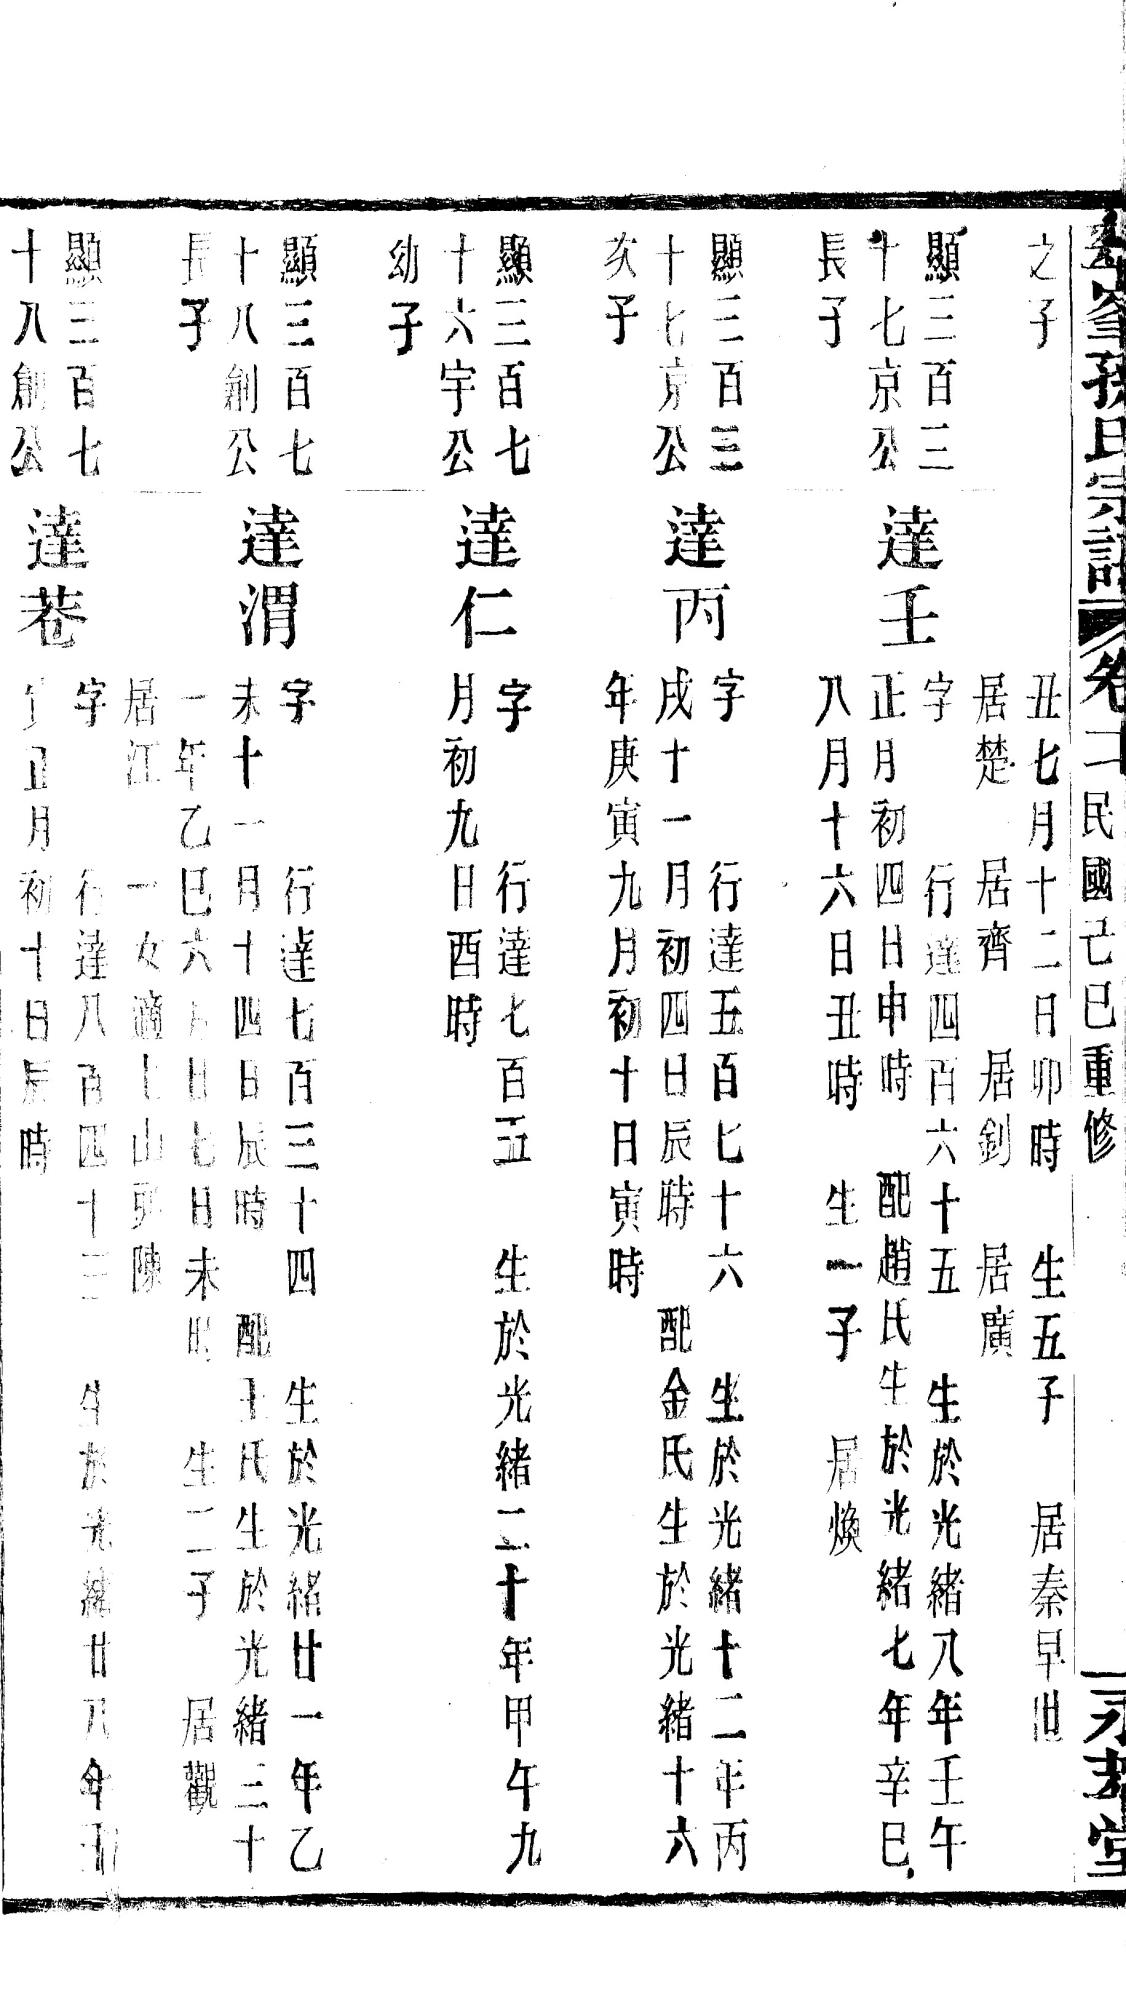 峯孫氏宗譜 卷二 民國己巳重修 永莪堂
之子
丑七月十二日卯時 生五子 居秦早世
居楚 居齊 居釗 居廣
顯三百三
十七京公
長子
達壬
字 行達四百六十五 生於光緒八年壬午
正月初四日申時 配趙氏生於光緒七年辛巳
八月十六日丑時 生一子 居煥
顯三百三
十七京公
次子
達丙
字 行達五百七十六 生於光緒十二年丙
戌十一月初四日辰時 配金氏生於光緒十六
年庚寅九月初十日寅時
顯三百七
十六宇公
幼子
達仁
字 行達七百五 生於光緒二十年甲午九
月初九日酉時
顯三百七
十八創公
長子
達渭
字 行達七百三十四 生於光緒廿一年乙
未十一月十四日辰時 配王氏生於光緒三十
一年乙巳六月廿七日未時 生二子 居觀
居江 一女適七山頭陳
顯三百七
十八創公
達巷
字 行達八百四十三 生於光緒廿八年壬
寅正月初十日辰時